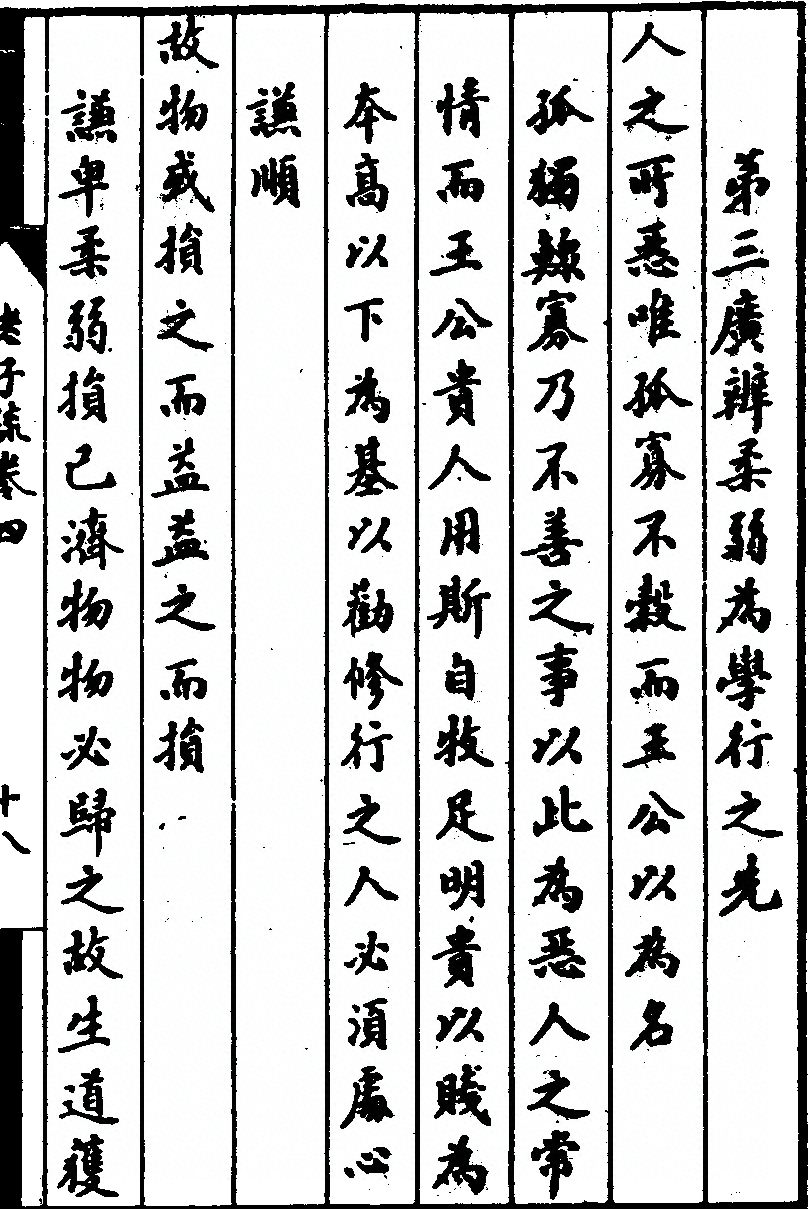 第三廣辨柔弱為學行之先
人之所惡唯孤寡不穀而王公以為名
孤獨鰥寡乃不善之事以此為惡人之常
情而王公貴人用斯自牧足明貴以賤為
本高以下為基以勸修行之人必須處心
謙順
故物或損之而益益之而損
謙卑柔弱損己濟物物必歸之故生道獲
老子疏卷四
十八